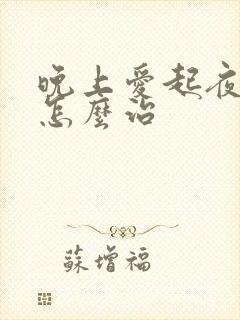 晚上愛起夜
怎麼治
蘇增福